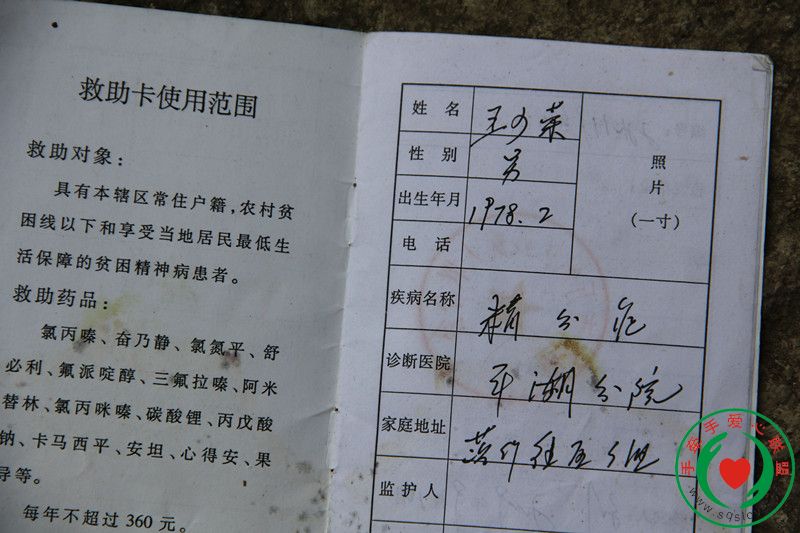 救助卡使用范围
救助对象：
具有本辖区常住户籍，农村贫
困线以下和享受当地居民最低生
活保障的贫困精神病患者。
救助药品：
氯丙嗪、奋乃静、氯氮平、舒
必利、氟派啶醇、三氟拉嗪、阿米
替林、氯丙咪嗪、碳酸锂、丙戊酸
钠、卡马西平、安坦、心得安、果
导等。
每年不超过360元。
姓 名 王少荣
性 别 男
出生年月 1978.2
电 话
照
片
（一寸）
疾病名称 精分症
诊断医院 平湖分院
家庭地址
监护人
手牵手爱心联盟
www.sqslc